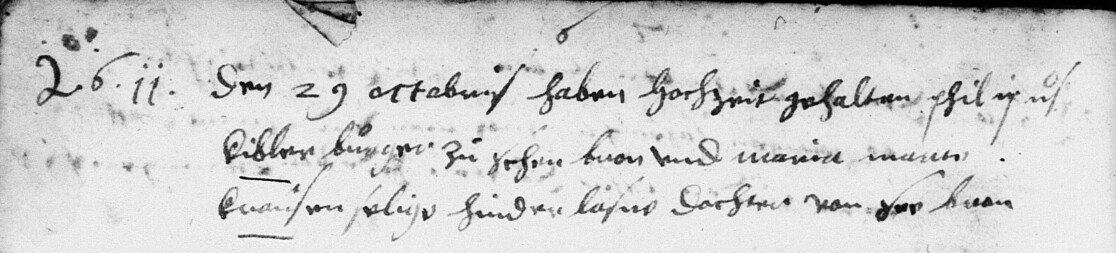 6
1611. den 29 octobris haben hochzeit gehalten philipus
kibler burger zu schen buon und maria
selige hinder lasne dochter von buon